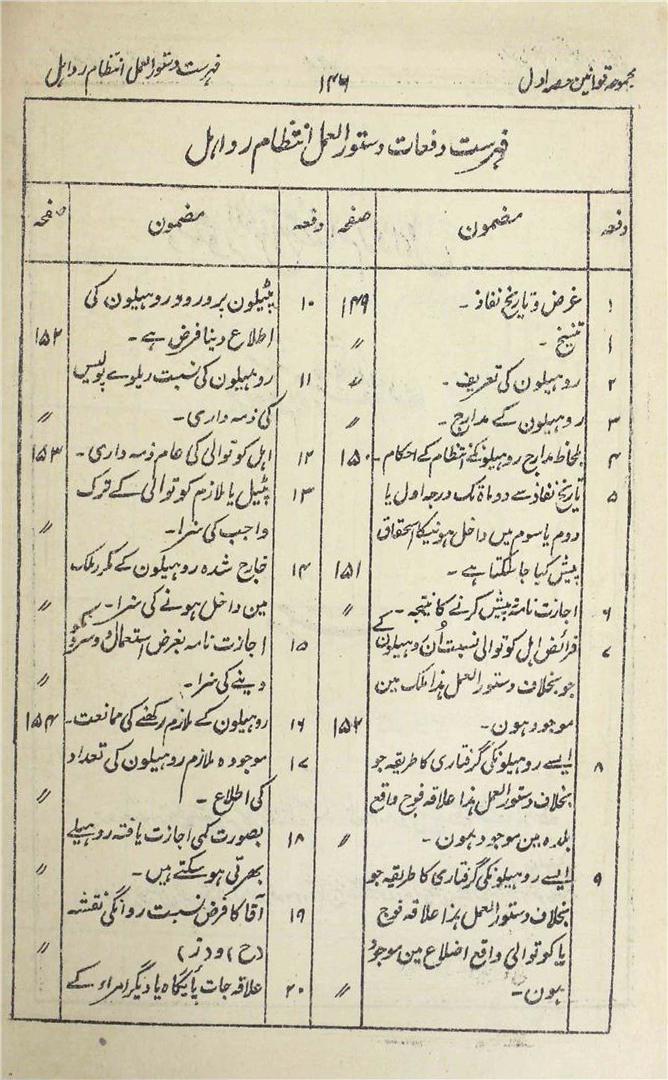 مجموعہ قوانین حصہ اول
۱۴۶
فہرست دستور العمل انتظام رواہل
فہرست دفعات دستور العمل انتظام رواہل
دفعہ مضمون صفحہ
۱ غرض و تاریخ نفاذ ۔ ۱۴۹
۱ تنسیخ ۔ //
۲ روہیلون کی تعریف ۔ //
۳ روہیلون کے مدارج ۔ //
۴ بلحاظ مدارج روہیلونکے انتظام کے احکام ۔ ۱۵۰
۵ تاریخ نفاذ سے دو ماہ تک درجہ اول یا
دوم یا سوم میں داخل ہونیکا استحقاق
پیش کیا جا سکتا ہے ۔ ۱۵۱
۶ اجازت نامہ پیش کرنے کا نتیجہ ۔ //
۷ فرائض اہل کوتوالی نسبت اُن روہیلون کے
جو بخلاف دستور العمل ہذا ملک مین
موجود ہون ۔ ۱۵۲
۸ ایسے روہیلونکی گرفتاری کا طریقہ جو
بخلاف دستور العمل ہذا علاقہ فوج واقع
بلدہ مین موجود ہون ۔ //
۹ ایسے روہیلونکی گرفتاری کا طریقہ جو
بخلاف دستور العمل ہذا علاقہ فوج
یا کوتوالی واقع اضلاع مین موجود
ہون ۔ //
دفعہ مضمون صفحہ
۱۰ پٹیلون پر ورود روہیلون کی
اطلاع دینا فرض ہے ۔ ۱۵۲
۱۱ روہیلون کی نسبت ریلوے پولیس
کی ذمہ داری ۔ //
۱۲ اہل کوتوالی کی عام ذمہ داری ۔ ۱۵۳
۱۳ پٹیل یا ملازم کوتوالی کے ترک
واجب کی سزا ۔ //
۱۴ خارج شدہ روہیلون کے مکرر ملک
مین داخل ہونے کی سزا ۔ //
۱۵ اجازت نامہ بغرض استعمال دوسرے کو
دینے کی سزا ۔ //
۱۶ روہیلون کے ملازم رکھنے کی ممانعت ۔ ۱۵۴
۱۷ موجودہ ملازم روہیلون کی تعداد
کی اطلاع ۔ //
۱۸ بصورت کمی اجازت یافتہ روہیلے
بھرتی ہو سکتے ہیں ۔ //
۱۹ آقا کا فرض نسبت روانگی نقشہ
(ح) و (ز) //
۲۰ علاقہ جات پائیگاہ یا دیگر امراء کے